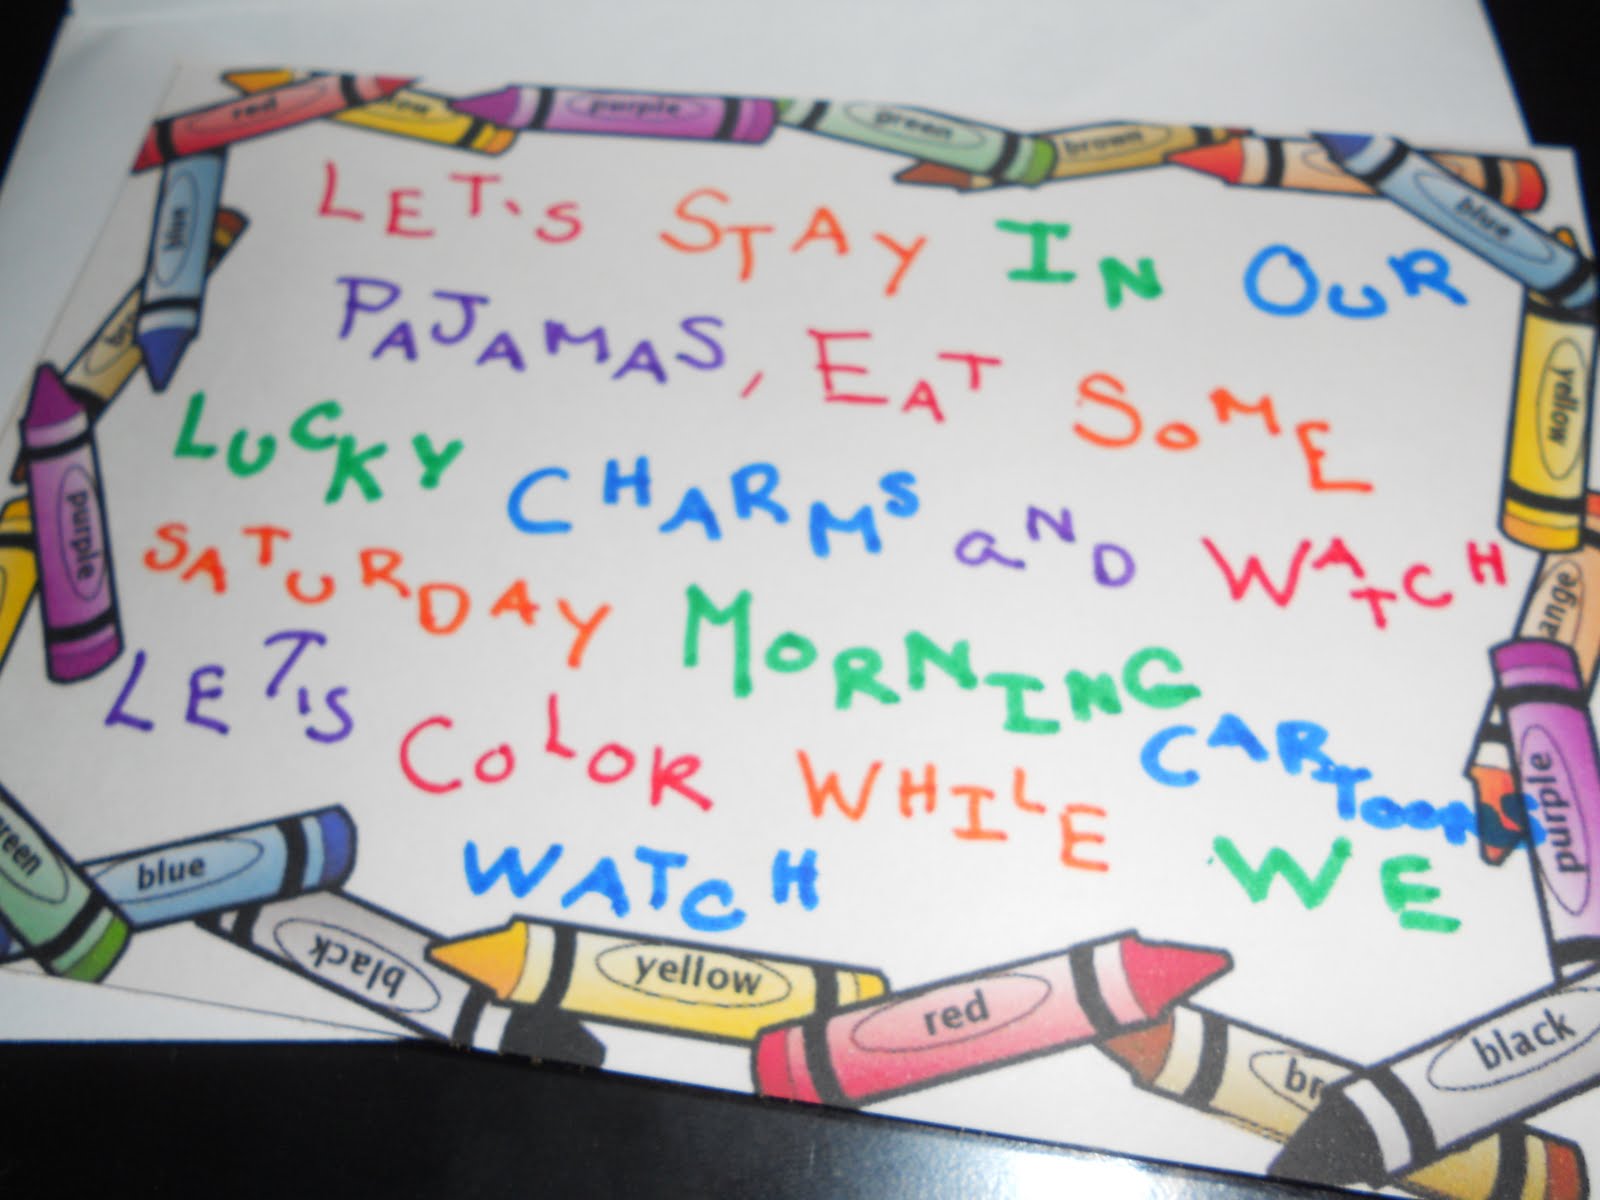 LET'S STAY IN OUR
PAJAMAS, EAT SOME
LUCKY CHARMS aND WATCH
SATURDAY MORNING CARTOONS
LET'S COLOR WHILE WE
WATCH
red
purple
green
brown
blue
blue
yellow
purple
ange
purple
green
blue
black
yellow
red
br
black